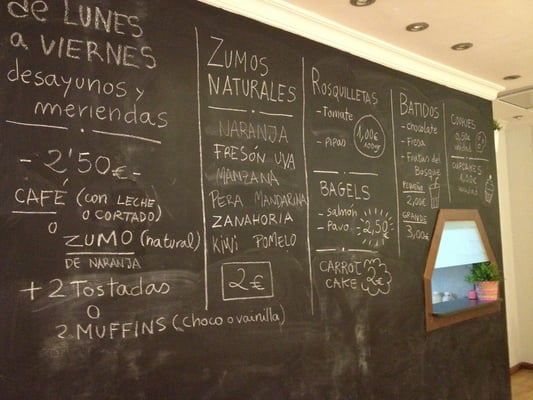 de LUNES
a VIERNES
desayunos y
meriendas
- 2'50€ -
CAFÉ (con LECHE
o CORTADO)
o
ZUMO (natural)
DE NARANJA
+ 2 Tostadas
o
2 MUFFINS (choco o vainilla)
ZUMOS
NATURALES
NARANJA
FRESÓN UVA
MANZANA
PERA MANDARINA
ZANAHORIA
KIWI POMELO
2€
ROSQUILLETAS
- Tomate
- Pipas
1,00€
100gr
BAGELS
- Salmón
- Pavo
2,50€
CARROT
CAKE
2€
BATIDOS
- Chocolate
- Fresa
- Frutas del
Bosque
PEQUEÑO
2,00€
GRANDE
3,00€
COOKIES
0,50€
unidad
CUPCAKES
unidad